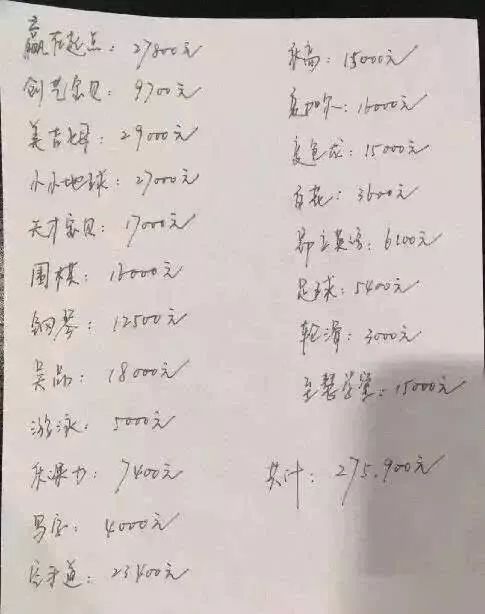 赢在起点：27800元
创艺宝贝：9700元
美吉姆：29000元
小小地球：27000元
天才宝贝：17000元
围棋：16000元
钢琴：12500元
昊品：18000元
游泳：5000元
乐漾力：7400元
写字：4000元
空手道：23400元
乐高：15000元
爱加尔：16000元
变色龙：15000元
百花：3600元
昂立英语：6100元
足球：5400元
轮滑：3000元
至慧学堂：15000元
共计：275,900元